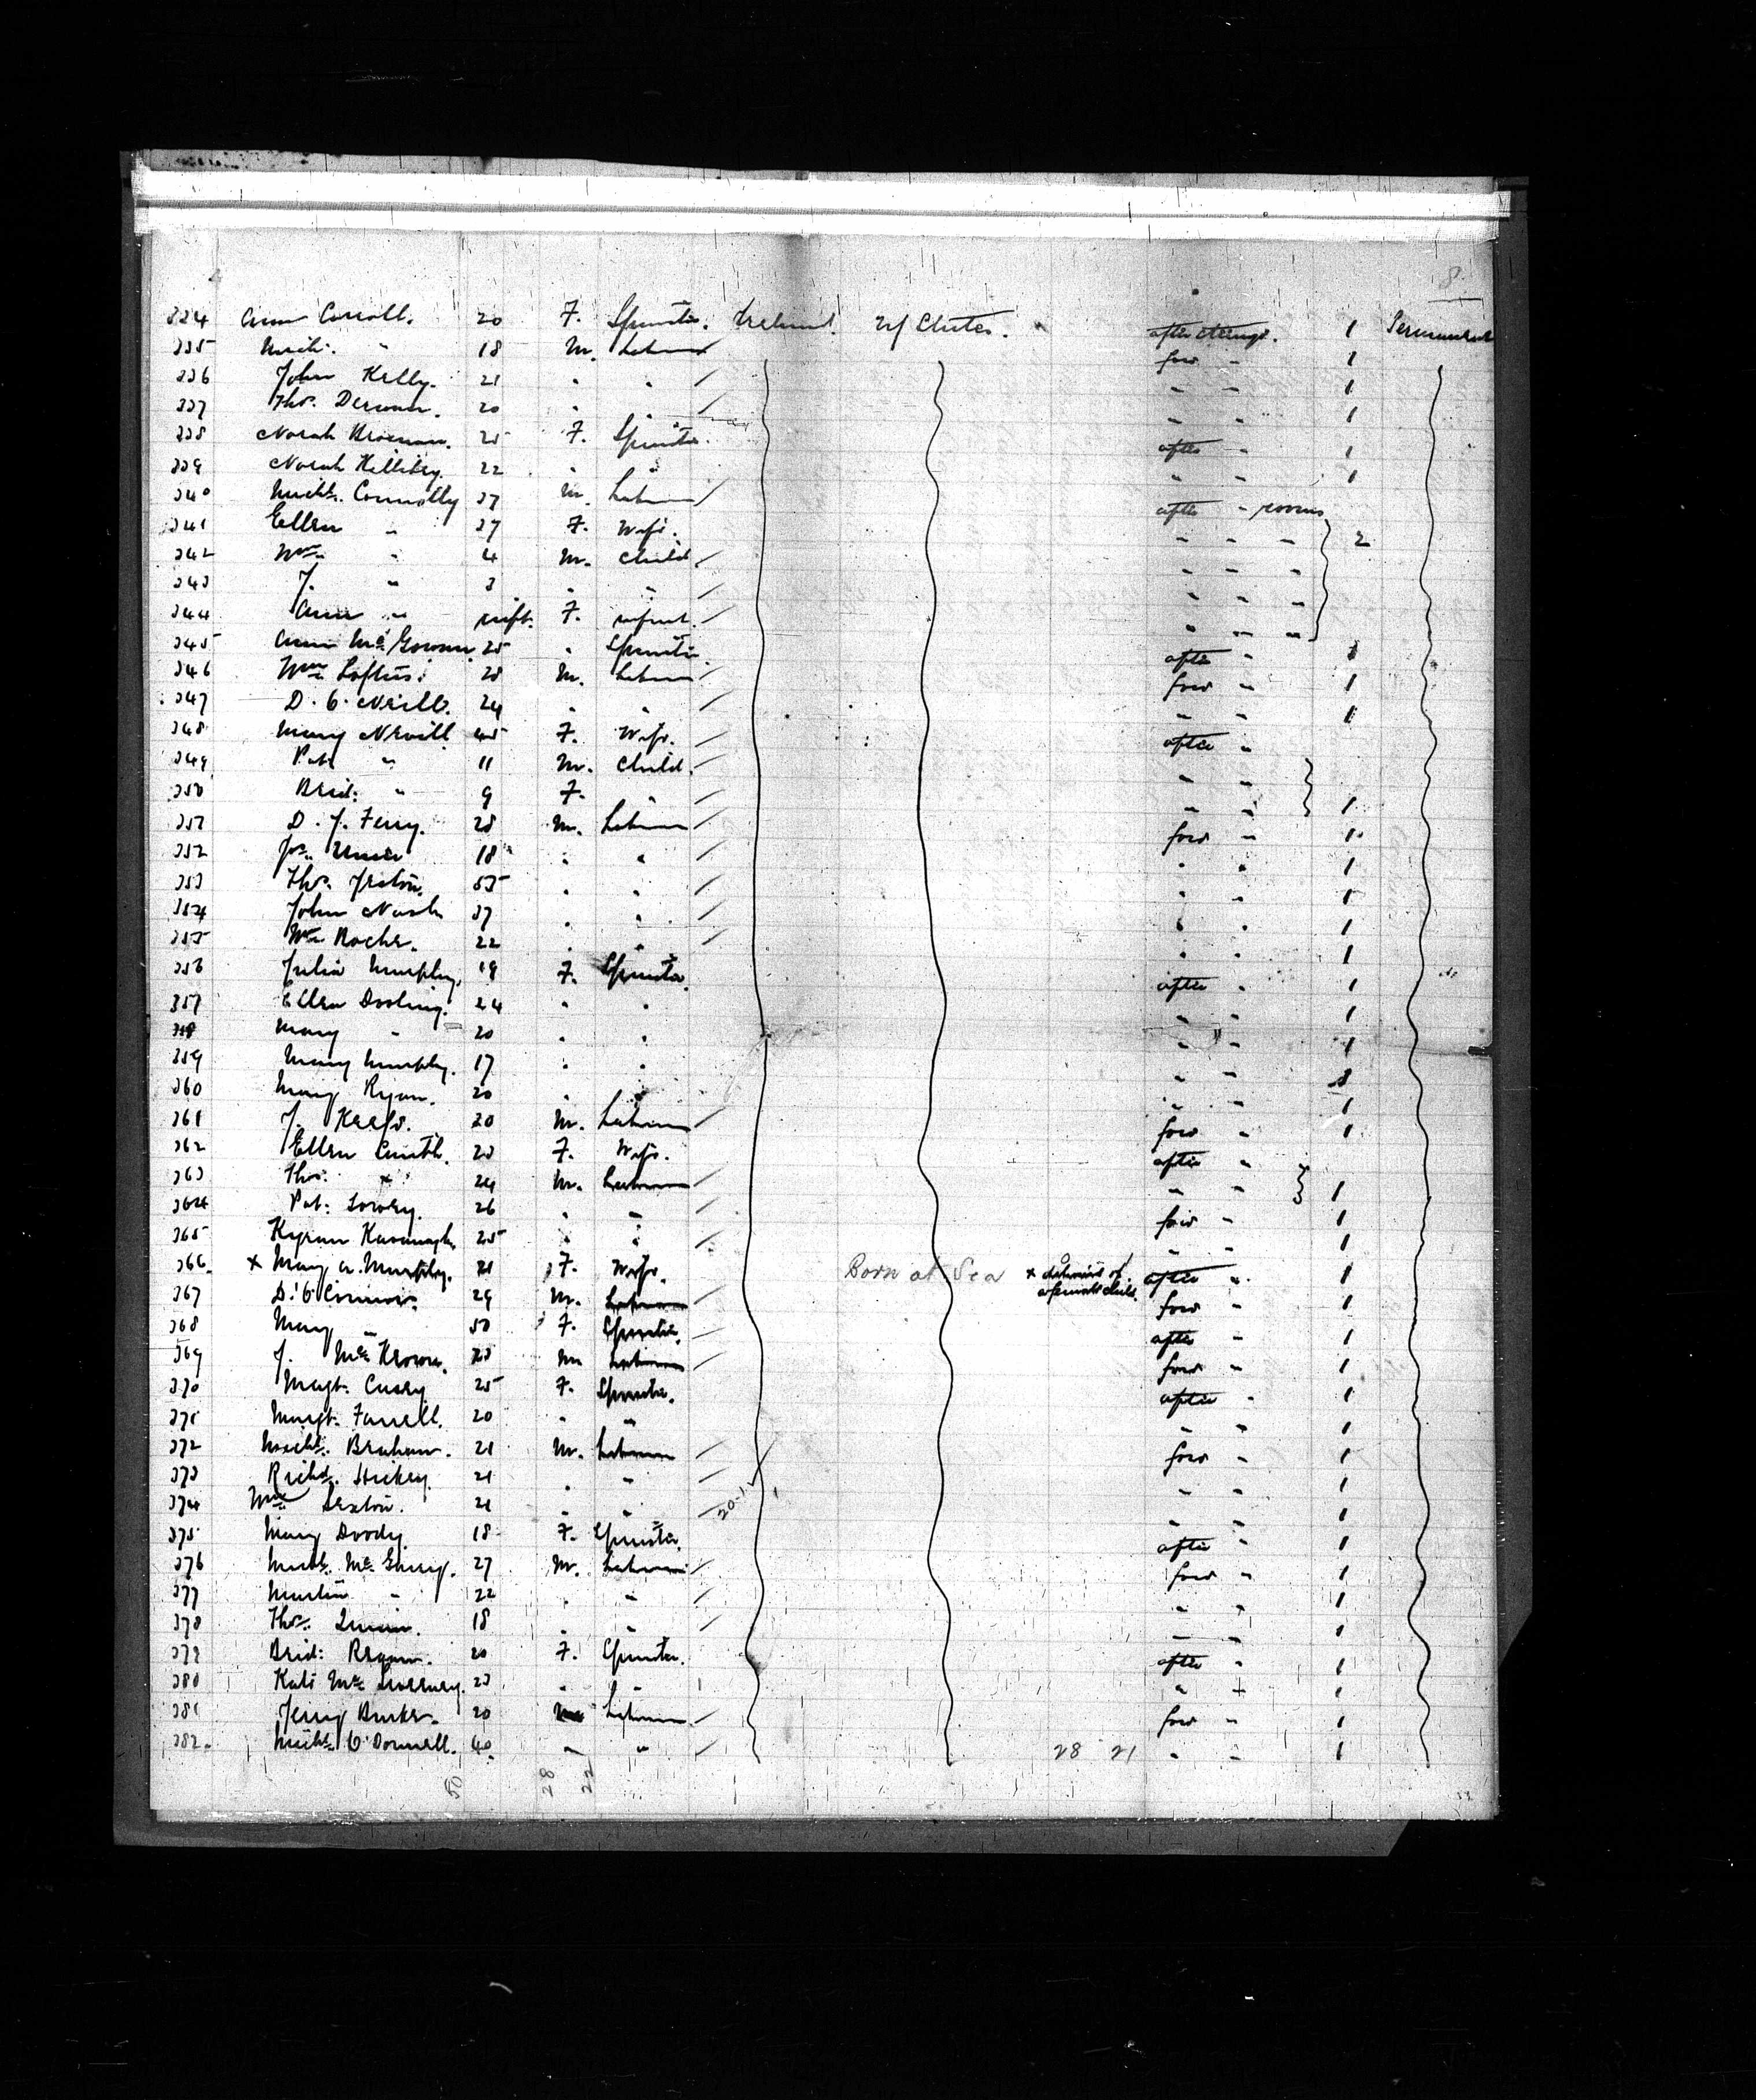 8
334 Ann Carroll. 20 F. Spinster. Ireland. U/States. after steerage. 1 Permanent
335 Mich: " 18 M. Laborer fore " 1
336 John Kelly. 21 " " " " 1
337 Thos. Dermon. 20 " " " 1
338 Norah Brosnan. 25 F. Spinster. after " 1
339 Norah Killiley. 22 " " " " 1
340 Michl. Connolly 37 M. Laborer after " rooms
341 Ellen " 27 F. Wife. " " " 2
342 Wm " 4 M. Child. " " "
343 J. " 3 " " " " "
344 Ann " inft. F. infant. " " "
345 Ann McGowan. 25 " Spinster. after " 1
346 Wm Loftus. 28 M. Laborer fore " 1
347 D. O'Neill. 24 " " " " 1
348 Mary Nevill 45 F. Wife. after "
349 Pat: " 11 M. Child. " "
350 Brid: " 9 F. " " " 1
351 D. J. Ferry. 28 M. Laborer fore " 1
352 Jas. 18 " " " " 1
353 Thos. 55 " " " " 1
354 John Nash 37 " " " " 1
355 Wm Roche. 22 " " " " 1
356 Julia Murphy. 19 F. Spinster. after " 1
357 Ellen Dooling. 24 " " " " 1
358 Mary " 20 " " " " 1
359 Mary Murphy. 17 " " " "
360 Mary Ryan. 20 " " " " 1
361 J. Keefe. 20 M. Laborer fore " 1
362 Ellen Smith. 23 F. Wife. after "
363 Thos. " 24 M. Laborer " " 1
364 Pat: Lowry. 26 " " fore " 1
365 Kyran Kavanagh. 25 " " " " 1
366. x Mary A. Murphy. 21 F. Wife. Born at Sea x delivered of a female child. after " 1
367 D. O'Connor. 29 M. Laborer fore " 1
368 Mary " 50 F. Spinster. after " 1
369 J. McKeown. 23 M Laborer fore " 1
370 Magt. Casey 25 F. Spinster. after " 1
371 Margt. Farrell. 20 " " " " 1
372 Michl. Brahan. 21 M. Laborer fore " 1
373 Richd. Hickey. 21 " " " " 1
374 Wm Sexton. 21 " " " " 1
375 Mary Doody 18 F. Spinster. after " 1
376 Michl. McGarry. 27 M. Laborer fore " 1
377 Martin " 22 " " " " 1
378 Thos. Quinn. 18 " " " " 1
379 Brid: Regan. 20 F. Spinster. after " 1
380 Kate McInerney. 23 " " " " 1
381 Jerry Burke. 20 M Laborer fore " 1
382. Michl. O'Donnell. 40. " " 28 21 " " 1
50 28 22